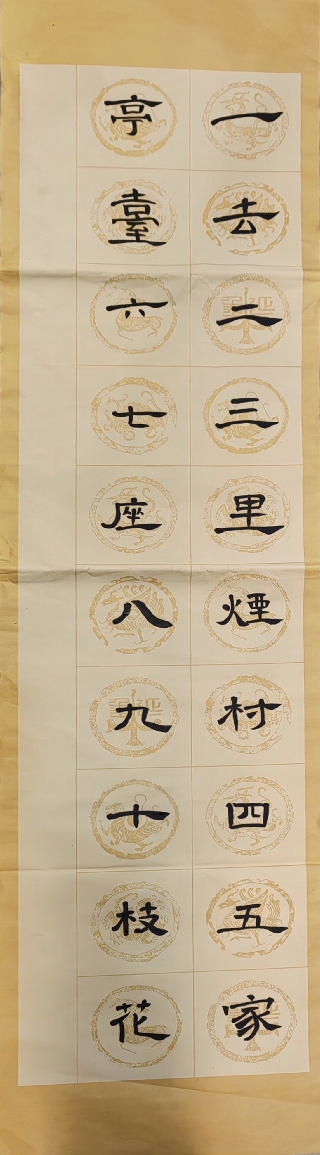 一去二三里煙村四五家
亭臺六七座八九十枝花